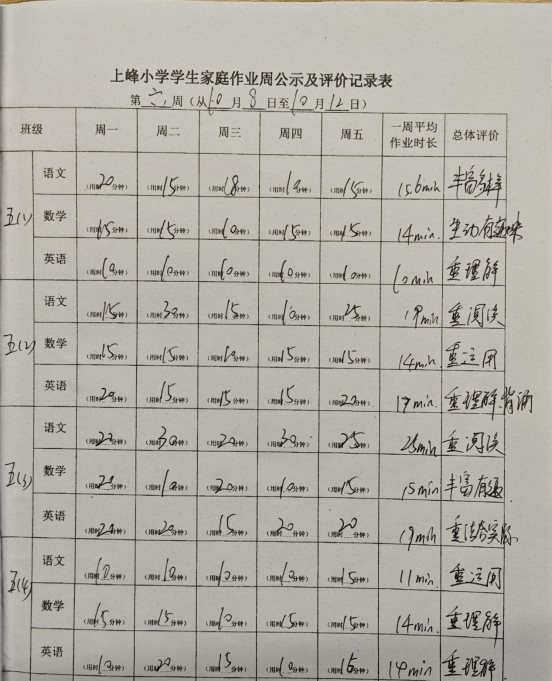 上峰小学学生家庭作业周公示及评价记录表
第 六 周（从 10 月 8 日至 10 月 12 日）
班级 周一 周二 周三 周四 周五 一周平均作业时长 总体评价
五(1) 语文 （用时20分钟） （用时15分钟） （用时18分钟） （用时10分钟） （用时15分钟） 15.6min 丰富多样
数学 （用时15分钟） （用时15分钟） （用时10分钟） （用时15分钟） （用时15分钟） 14min. 生动有趣味
英语 （用时10分钟） （用时10分钟） （用时10分钟） （用时10分钟） （用时10分钟） 10min 重理解
五(2) 语文 （用时15分钟） （用时30分钟） （用时15分钟） （用时10分钟） （用时25分钟） 19min 重阅读
数学 （用时15分钟） （用时15分钟） （用时10分钟） （用时15分钟） （用时15分钟） 14min. 重运用
英语 （用时20分钟） （用时15分钟） （用时15分钟） （用时15分钟） （用时20分钟） 17min. 重理解.背诵
五(3) 语文 （用时20分钟） （用时30分钟） （用时20分钟） （用时30分钟） （用时25分钟） 25min 重阅读
数学 （用时20分钟） （用时10分钟） （用时20分钟） （用时10分钟） （用时15分钟） 15min 丰富有趣
英语 （用时20分钟） （用时20分钟） （用时15分钟） （用时20分钟） （用时20分钟） 19min 重结合实际
五(4) 语文 （用时10分钟） （用时10分钟） （用时10分钟） （用时10分钟） （用时15分钟） 11min. 重运用
数学 （用时15分钟） （用时15分钟） （用时10分钟） （用时15分钟） （用时15分钟） 14min. 重理解
英语 （用时10分钟） （用时20分钟） （用时15分钟） （用时10分钟） （用时15分钟） 14min 重理解